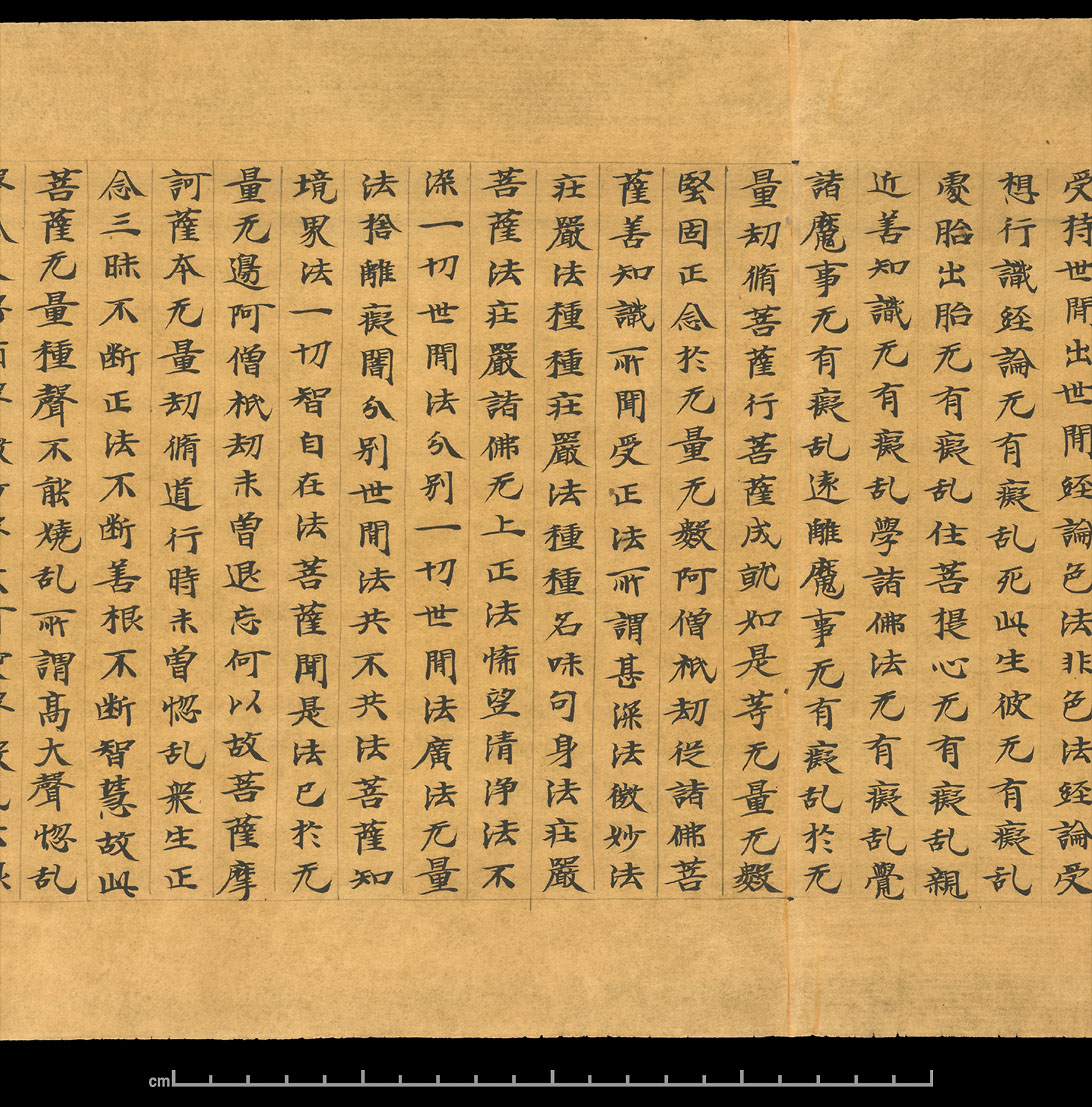 受持世間出世間經論色法非色法經論受
想行識經論无有癡乱死此生彼无有癡乱
處胎出胎无有癡乱住菩提心无有癡乱親
近善知識无有癡乱學諸佛法无有癡乱覺
諸魔事无有癡乱遠離魔事无有癡乱於无
量劫脩菩薩行菩薩成就如是等无量无數
堅固正念於无量无數阿僧祇劫從諸佛菩
薩善知識所聞受正法所謂甚深法微妙法
莊嚴法種種莊嚴法種種名味句身法莊嚴
菩薩法莊嚴諸佛无上正法悕望清淨法不
染一切世間法分別一切世間法廣法无量
法捨離癡闇分別世間法共不共法菩薩知
境界法一切智自在法菩薩聞是法已於无
量无邊阿僧祇劫未曾退忘何以故菩薩摩
訶薩本无量劫脩道行時未曾惚乱衆生正
念三昧不断正法不断善根不断智慧故此
菩薩无量種聲不能燒乱所謂高大聲惚乱
cm